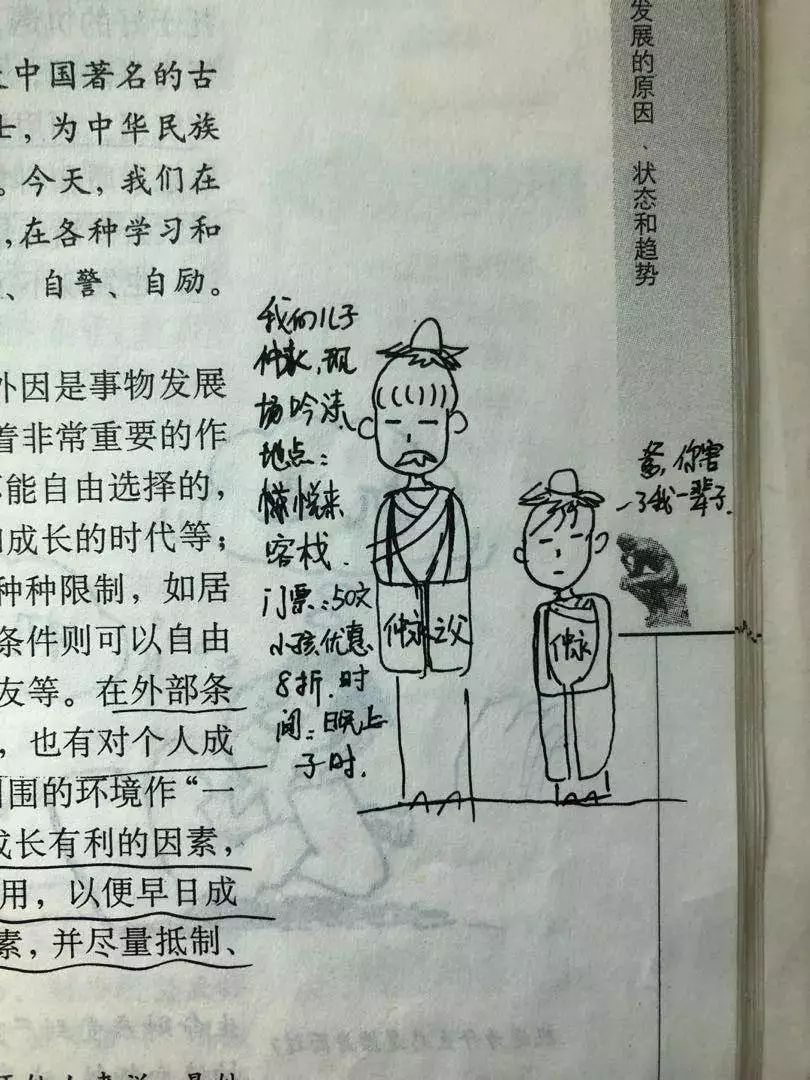 中国著名的古
士，为中华民族
。今天，我们在
，在各种学习和
、自警、自励。
外因是事物发展
着非常重要的作
能自由选择的，
成长的时代等；
种种限制，如居
条件则可以自由
友等。在外部条
，也有对个人成
围的环境作“一
成长有利的因素，
用，以便早日成
素，并尽量抵制、
发展的原因、状态和趋势
我们儿子
仲永，现
场吟诗
地点：
悦来
客栈．
门票：50文
小孩优惠
8折．时
间：晚上
子时．
仲永之父
爹，你害
了我一辈子．
仲永